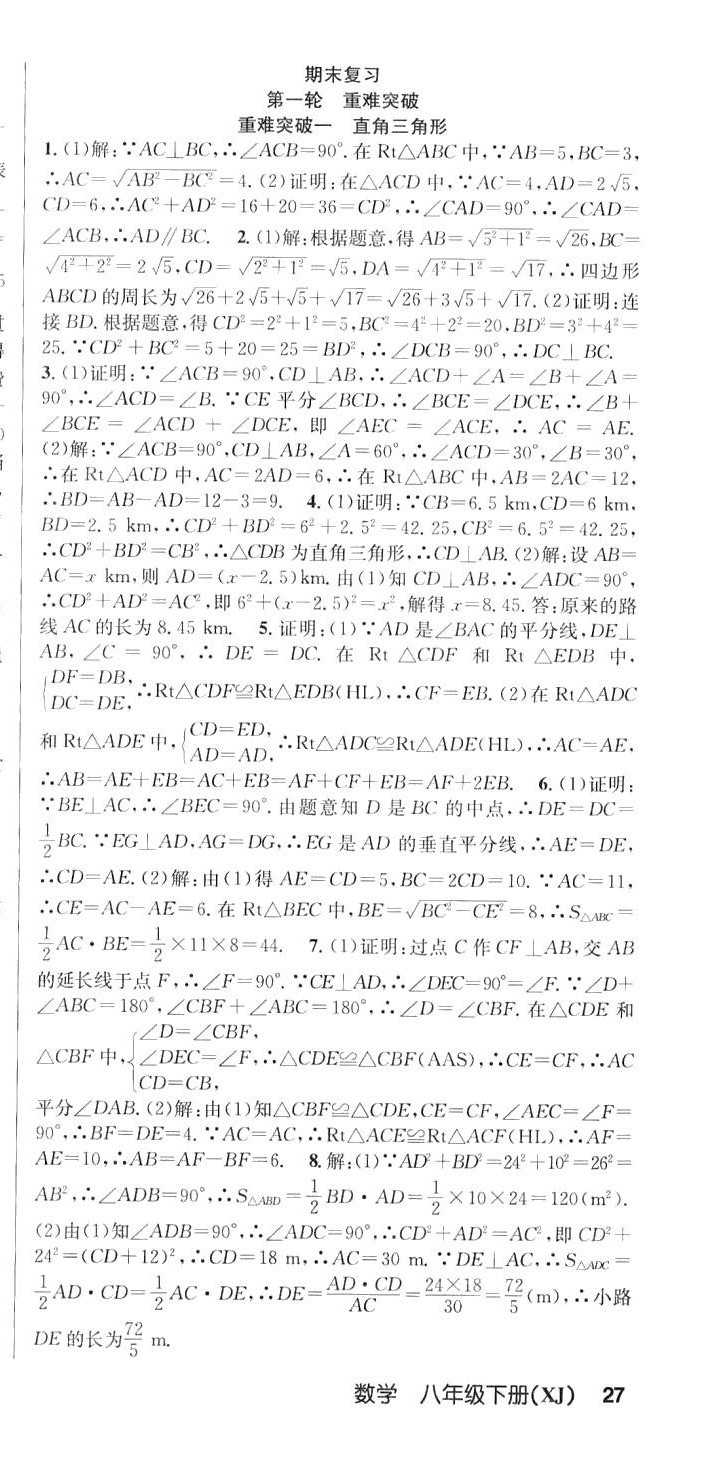 期末复习
第一轮 重难突破
重难突破一 直角三角形
1. (1)解:∵AC⊥BC,∴∠ACB=90°.在 Rt△ABC 中,∵AB=5,BC=3,
∴AC=√(AB²-BC²)=4.(2)证明:在△ACD 中,∵AC=4,AD=2√5,
CD=6,∴AC²+AD²=16+20=36=CD²,∴∠CAD=90°,∴∠CAD=
∠ACB,∴AD∥BC. 2. (1)解:根据题意,得 AB=√(5²+1²)=√26,BC=
√(4²+2²)=2√5,CD=√(2²+1²)=√5,DA=√(4²+1²)=√17,∴四边形
ABCD 的周长为√26+2√5+√5+√17=√26+3√5+√17.(2)证明:连
接 BD.根据题意,得 CD²=2²+1²=5,BC²=4²+2²=20,BD²=3²+4²=
25.∵CD²+BC²=5+20=25=BD²,∴∠DCB=90°,∴DC⊥BC.
3. (1)证明:∵∠ACB=90°,CD⊥AB,∴∠ACD+∠A=∠B+∠A=
90°,∴∠ACD=∠B.∵CE 平分∠BCD,∴∠BCE=∠DCE,∴∠B+
∠BCE=∠ACD+∠DCE,即∠AEC=∠ACE,∴AC=AE.
(2)解:∵∠ACB=90°,CD⊥AB,∠A=60°,∴∠ACD=30°,∠B=30°,
∴在 Rt△ACD 中,AC=2AD=6,∴在 Rt△ABC 中,AB=2AC=12,
∴BD=AB-AD=12-3=9. 4. (1)证明:∵CB=6.5 km,CD=6 km,
BD=2.5 km,∴CD²+BD²=6²+2.5²=42.25,CB²=6.5²=42.25,
∴CD²+BD²=CB²,∴△CDB 为直角三角形,∴CD⊥AB.(2)解:设 AB=
AC=x km,则 AD=(x-2.5)km.由(1)知 CD⊥AB,∴∠ADC=90°,
∴CD²+AD²=AC²,即 6²+(x-2.5)²=x²,解得 x=8.45.答:原来的路
线 AC 的长为 8.45 km. 5. 证明:(1)∵AD 是∠BAC 的平分线,DE⊥
AB,∠C=90°,∴DE=DC.在 Rt△CDF 和 Rt△EDB 中,
{DF=DB,
DC=DE, ∴Rt△CDF≌Rt△EDB(HL),∴CF=EB.(2)在 Rt△ADC
和 Rt△ADE 中,{CD=ED,
AD=AD, ∴Rt△ADC≌Rt△ADE(HL),∴AC=AE,
∴AB=AE+EB=AC+EB=AF+CF+EB=AF+2EB. 6. (1)证明:
∵BE⊥AC,∴∠BEC=90°.由题意知 D 是 BC 的中点,∴DE=DC=
1/2 BC.∵EG⊥AD,AG=DG,∴EG 是 AD 的垂直平分线,∴AE=DE,
∴CD=AE.(2)解:由(1)得 AE=CD=5,BC=2CD=10.∵AC=11,
∴CE=AC-AE=6.在 Rt△BEC 中,BE=√(BC²-CE²)=8,∴S△ABC=
1/2 AC·BE=1/2×11×8=44. 7. (1)证明:过点 C 作 CF⊥AB,交 AB
的延长线于点 F,∴∠F=90°.∵CE⊥AD,∴∠DEC=90°=∠F.∵∠D+
∠ABC=180°,∠CBF+∠ABC=180°,∴∠D=∠CBF.在△CDE 和
△CBF 中,{∠D=∠CBF,
∠DEC=∠F,
CD=CB, ∴△CDE≌△CBF(AAS),∴CE=CF,∴AC
平分∠DAB.(2)解:由(1)知△CBF≌△CDE,CE=CF,∠AEC=∠F=
90°,∴BF=DE=4.∵AC=AC,∴Rt△ACE≌Rt△ACF(HL),∴AF=
AE=10,∴AB=AF-BF=6. 8. 解:(1)∵AD²+BD²=24²+10²=26²=
AB²,∴∠ADB=90°,∴S△ABD=1/2 BD·AD=1/2×10×24=120(m²).
(2)由(1)知∠ADB=90°,∴∠ADC=90°,∴CD²+AD²=AC²,即 CD²+
24²=(CD+12)²,∴CD=18 m,∴AC=30 m.∵DE⊥AC,∴S△ADC=
1/2 AD·CD=1/2 AC·DE,∴DE=AD·CD/AC=24×18/30=72/5(m),∴小路
DE 的长为72/5 m.
数学 八年级下册(XJ) 27